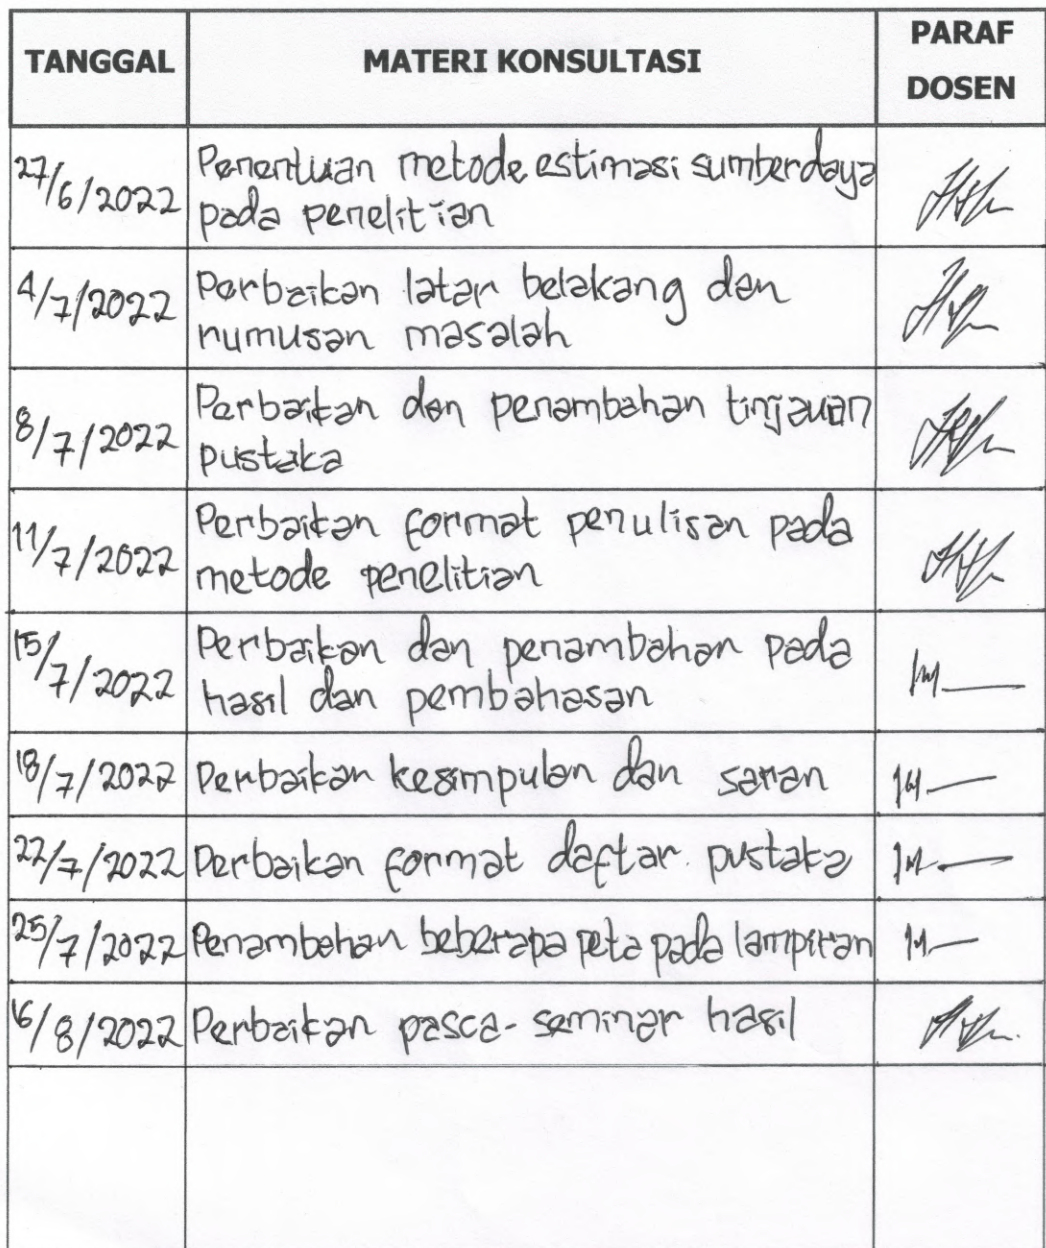 TANGGAL MATERI KONSULTASI PARAF
DOSEN
27/6/2022 Penentuan metode estimasi sumberdaya
pada penelitian
4/7/2022 Perbaikan latar belakang dan
rumusan masalah
8/7/2022 Perbaikan dan penambahan tinjauan
pustaka
11/7/2022 Perbaikan format penulisan pada
metode penelitian
15/7/2022 Perbaikan dan penambahan pada
hasil dan pembahasan
18/7/2022 Perbaikan kesimpulan dan saran
22/7/2022 Perbaikan format daftar pustaka
25/7/2022 Penambahan beberapa peta pada lampiran
16/8/2022 Perbaikan pasca-seminar hasil